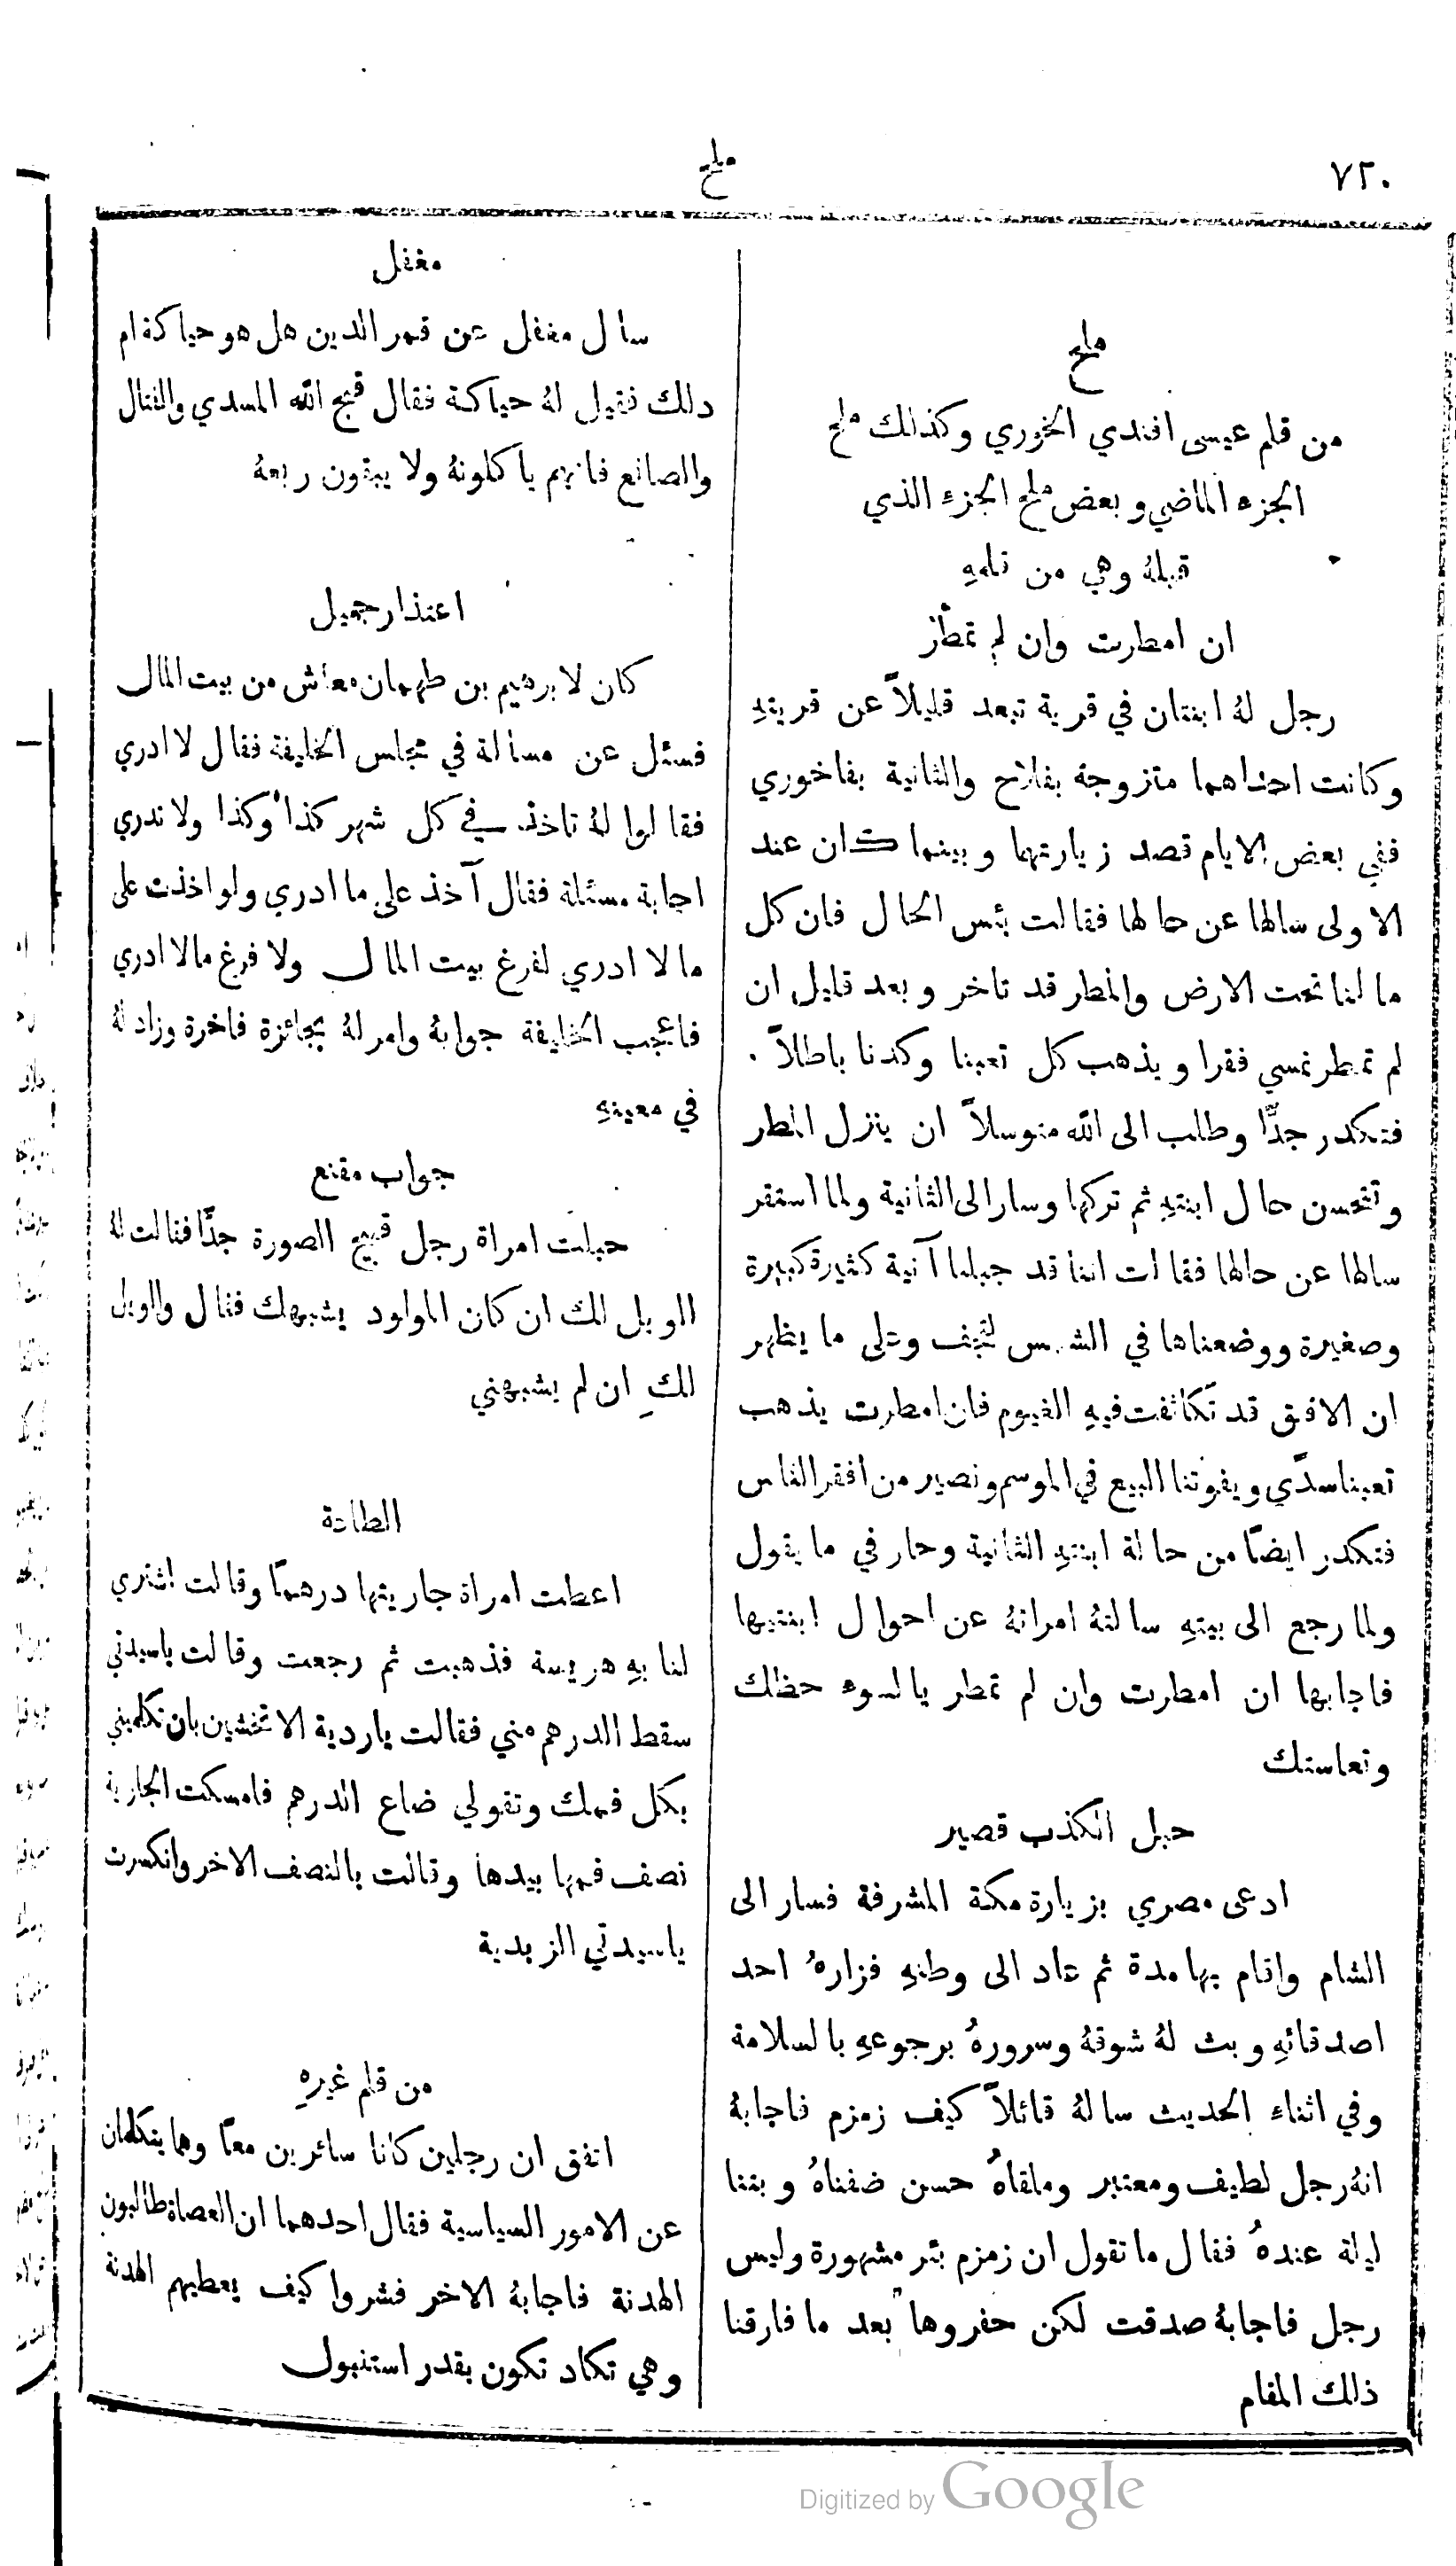 ٧٢٠
ملح
ملح
من قلم عيسى افندي الخوري وكذلك ملح
الجزء الماضي وبعض ملح الجزء الذي
قبلهُ وهي من قلمهِ
ان امطرت وان لم تمطر
رجل لهُ ابنتان في قرية تبعد قليلاً عن قريتهِ
وكانت احداهما متزوجة بفلاح والثانية بفاخوري
ففي بعض الايام قصد زيارتهما وبينما كان عند
الاولى سالها عن حالها فقالت بئس الحال فان كل
ما لنا تحت الارض والمطر قد تاخر وبعد قليل ان
لم تمطر نمسي فقرا ويذهب كل تعبنا وكدنا باطلاً .
فتكدر جدًّا وطلب الى الله متوسلاً ان ينزل المطر
وتتحسن حال ابنتهِ ثم تركها وسار الى الثانية ولما استقر
سالها عن حالها فقالت اننا قد جبلنا آنية كثيرة كبيرة
وصغيرة ووضعناها في الشمس لتجف وعلى ما يظهر
ان الافق قد تكاثفت فيهِ الغيوم فان امطرت يذهب
تعبنا سدًى ويفوتنا البيع في الموسم ونصير من افقر الناس
فتكدر ايضًا من حالة ابنتهِ الثانية وحار في ما يقول
ولما رجع الى بيتهِ سالتهُ امراتهُ عن احوال ابنتيها
فاجابها ان امطرت وان لم تمطر يا لسوء حظك
وتعاستك
حبل الكذب قصير
ادعى مصري بزيارة مكة المشرفة فسار الى
الشام واقام بها مدة ثم عاد الى وطنهِ فزارهُ احد
اصدقائهِ وبث لهُ شوقهُ وسرورهُ برجوعهِ بالسلامة
وفي اثناء الحديث سالهُ قائلاً كيف زمزم فاجابهُ
انهُ رجل لطيف ومعتبر وملقاهُ حسن ضفناهُ وبتنا
ليلة عندهُ فقال ما تقول ان زمزم بئر مشهورة وليس
رجل فاجابهُ صدقت لكن حفروها بعد ما فارقنا
ذلك المقام
مغفل
سأل مغفل عن قمر الدين هل هو حياكة ام
دلك فقيل لهُ حياكة فقال قبح الله المسدي والفتال
والصانع فانهم ياكلونهُ ولا يبقون ربعهُ
اعتذار جميل
كان لابرهيم بن طهمان معاش من بيت المال
فسئل عن مسألة في مجلس الخليفة فقال لا ادري
فقالوا لهُ تاخذ في كل شهر كذا وكذا ولا تدري
اجابة مسئلة فقال آخذ على ما ادري ولو اخذت على
ما لا ادري لفرغ بيت المال ولا فرغ ما لا ادري
فاعجب الخليفة جوابهُ وامر لهُ بجائزة فاخرة وزاد لهُ
في معينهِ
جواب مقنع
حبلت امراة رجل قبيح الصورة جدًّا فقالت لهُ
الويل لك ان كان المولود يشبهك فقال والويل
لكِ ان لم يشبهني
الطاعة
اعطت امراة جاريتها درهمًا وقالت اشتري
لنا بهِ هريسة فذهبت ثم رجعت وقالت ياسيدتي
سقط الدرهم مني فقالت ياردية الا تخشين بان تكلميني
بكل فمك وتقولي ضاع الدرهم فامسكت الجارية
نصف فمها بيدها وقالت بالنصف الاخر وانكسرت
ياسيدتي الزبدية
من قلم غيرهِ
اتفق ان رجلين كانا سائرين معًا وهما يتكلمان
عن الامور السياسية فقال احدهما ان العصاة طالبون
الهدنة فاجابهُ الاخر فشروا كيف يعطيهم الهدنة
وهي تكاد تكون بقدر استنبول
Digitized by Google